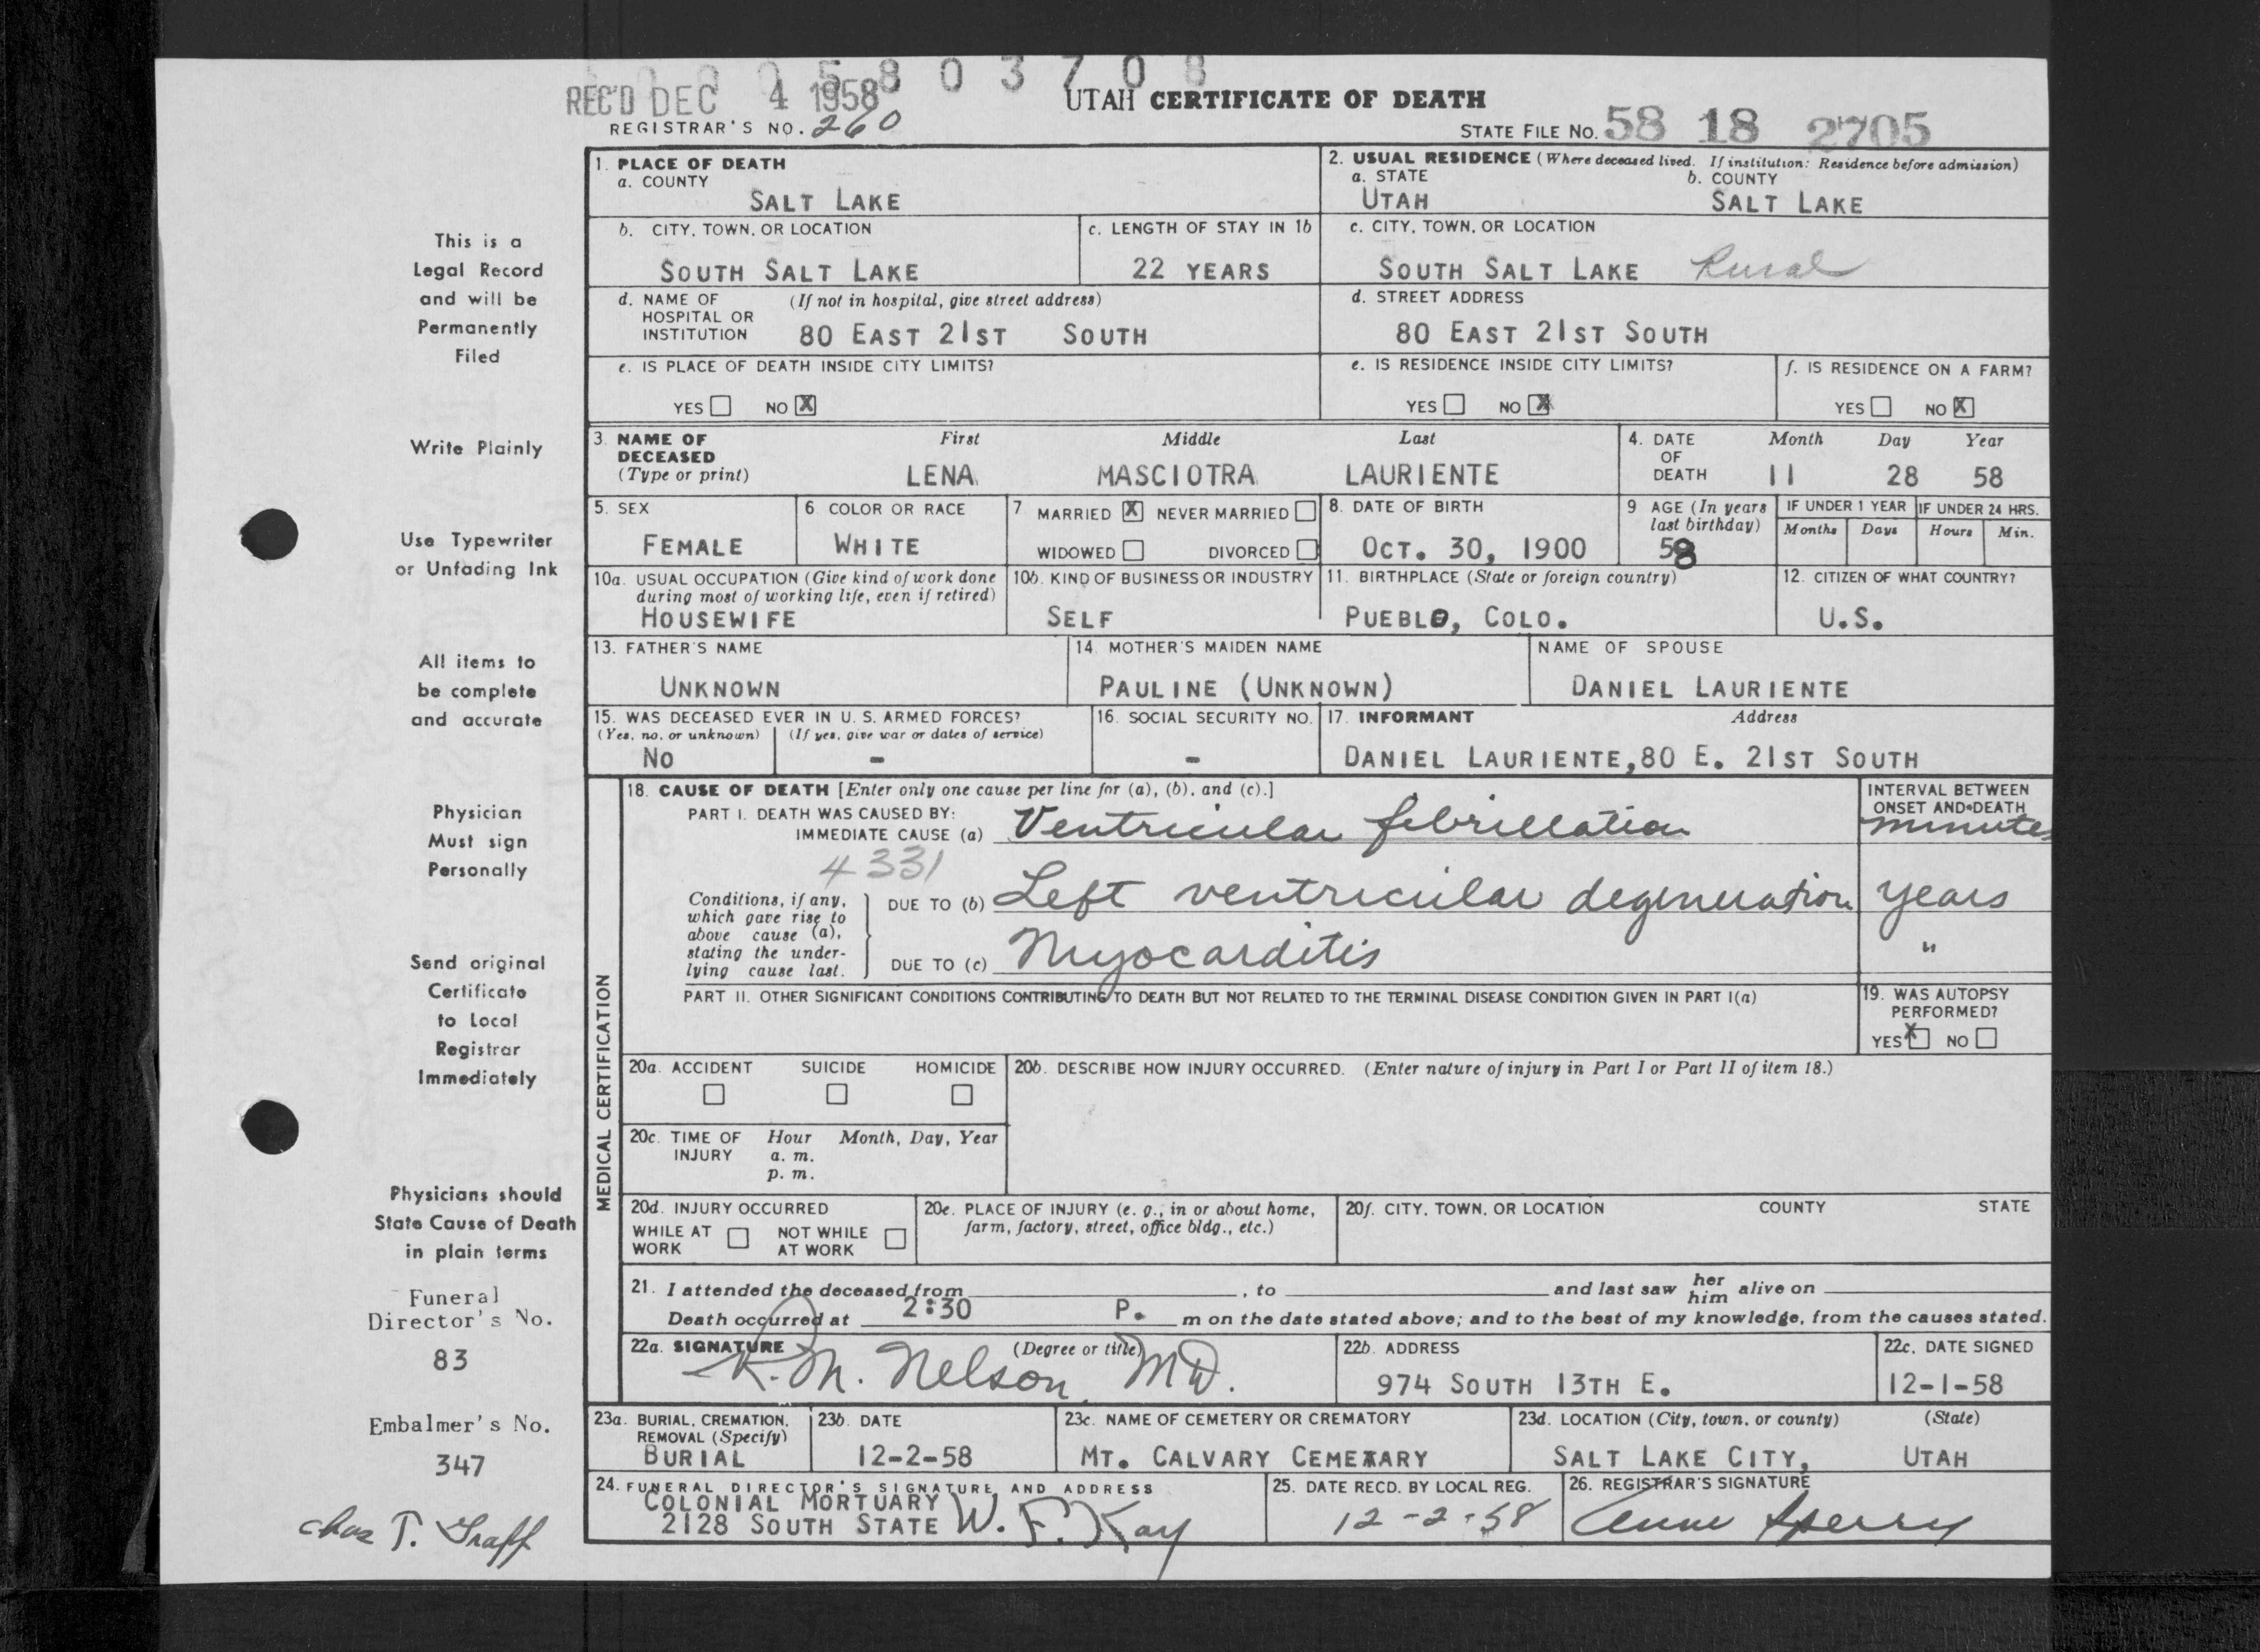 0 0 0 5 8 0 3 7 0 8
REC'D DEC 4 1958
UTAH CERTIFICATE OF DEATH
REGISTRAR'S NO. 260
STATE FILE NO. 58 18 2705
1. PLACE OF DEATH
a. COUNTY
SALT LAKE
2. USUAL RESIDENCE (Where deceased lived. If institution: Residence before admission)
a. STATE b. COUNTY
UTAH SALT LAKE
b. CITY, TOWN, OR LOCATION
SOUTH SALT LAKE
c. LENGTH OF STAY IN 1b
22 YEARS
c. CITY, TOWN, OR LOCATION
SOUTH SALT LAKE Rural
d. NAME OF (If not in hospital, give street address)
HOSPITAL OR
INSTITUTION 80 EAST 21ST SOUTH
d. STREET ADDRESS
80 EAST 21ST SOUTH
e. IS PLACE OF DEATH INSIDE CITY LIMITS?
YES NO X
e. IS RESIDENCE INSIDE CITY LIMITS?
YES NO X
f. IS RESIDENCE ON A FARM?
YES NO X
3. NAME OF DECEASED
(Type or print)
First Middle Last
LENA MASCIOTRA LAURIENTE
4. DATE OF DEATH
Month Day Year
11 28 58
5. SEX
FEMALE
6 COLOR OR RACE
WHITE
7 MARRIED X NEVER MARRIED
WIDOWED DIVORCED
8. DATE OF BIRTH
OCT. 30, 1900
9 AGE (In years
last birthday)
58
IF UNDER 1 YEAR
Months Days
IF UNDER 24 HRS.
Hours Min.
10a. USUAL OCCUPATION (Give kind of work done
during most of working life, even if retired)
HOUSEWIFE
10b. KIND OF BUSINESS OR INDUSTRY
SELF
11. BIRTHPLACE (State or foreign country)
PUEBLO, COLO.
12. CITIZEN OF WHAT COUNTRY?
U.S.
13. FATHER'S NAME
UNKNOWN
14. MOTHER'S MAIDEN NAME
PAULINE (UNKNOWN)
NAME OF SPOUSE
DANIEL LAURIENTE
15. WAS DECEASED EVER IN U. S. ARMED FORCES?
(Yes, no, or unknown) (If yes, give war or dates of service)
NO -
16. SOCIAL SECURITY NO.
-
17. INFORMANT Address
DANIEL LAURIENTE, 80 E. 21ST SOUTH
MEDICAL CERTIFICATION
18. CAUSE OF DEATH [Enter only one cause per line for (a), (b), and (c).]
INTERVAL BETWEEN
ONSET AND DEATH
PART I. DEATH WAS CAUSED BY:
IMMEDIATE CAUSE (a) Ventricular fibrillation minutes
4331
Conditions, if any,
which gave rise to
above cause (a),
stating the under-
lying cause last.
DUE TO (b) Left ventricular degeneration years
DUE TO (c) Myocarditis "
PART II. OTHER SIGNIFICANT CONDITIONS CONTRIBUTING TO DEATH BUT NOT RELATED TO THE TERMINAL DISEASE CONDITION GIVEN IN PART I(a)
19. WAS AUTOPSY
PERFORMED?
YES X NO
20a. ACCIDENT SUICIDE HOMICIDE
20b. DESCRIBE HOW INJURY OCCURRED. (Enter nature of injury in Part I or Part II of item 18.)
20c. TIME OF INJURY
Hour Month, Day, Year
a. m.
p. m.
20d. INJURY OCCURRED
WHILE AT WORK NOT WHILE AT WORK
20e. PLACE OF INJURY (e. g., in or about home,
farm, factory, street, office bldg., etc.)
20f. CITY, TOWN, OR LOCATION COUNTY STATE
21. I attended the deceased from , to and last saw her him alive on
Death occurred at 2:30 P. m on the date stated above; and to the best of my knowledge, from the causes stated.
22a. SIGNATURE (Degree or title)
K. M. Nelson, MD.
22b. ADDRESS
974 SOUTH 13TH E.
22c. DATE SIGNED
12-1-58
23a. BURIAL, CREMATION,
REMOVAL (Specify)
BURIAL
23b. DATE
12-2-58
23c. NAME OF CEMETERY OR CREMATORY
MT. CALVARY CEMETARY
23d. LOCATION (City, town, or county) (State)
SALT LAKE CITY, UTAH
24. FUNERAL DIRECTOR'S SIGNATURE AND ADDRESS
COLONIAL MORTUARY
2128 SOUTH STATE W. F. Kay
25. DATE RECD. BY LOCAL REG.
12-2-58
26. REGISTRAR'S SIGNATURE
Anne Sperry
This is a
Legal Record
and will be
Permanently
Filed
Write Plainly
Use Typewriter
or Unfading Ink
All items to
be complete
and accurate
Physician
Must sign
Personally
Send original
Certificate
to Local
Registrar
Immediately
Physicians should
State Cause of Death
in plain terms
Funeral
Director's No.
83
Embalmer's No.
347
Chas T. Graff